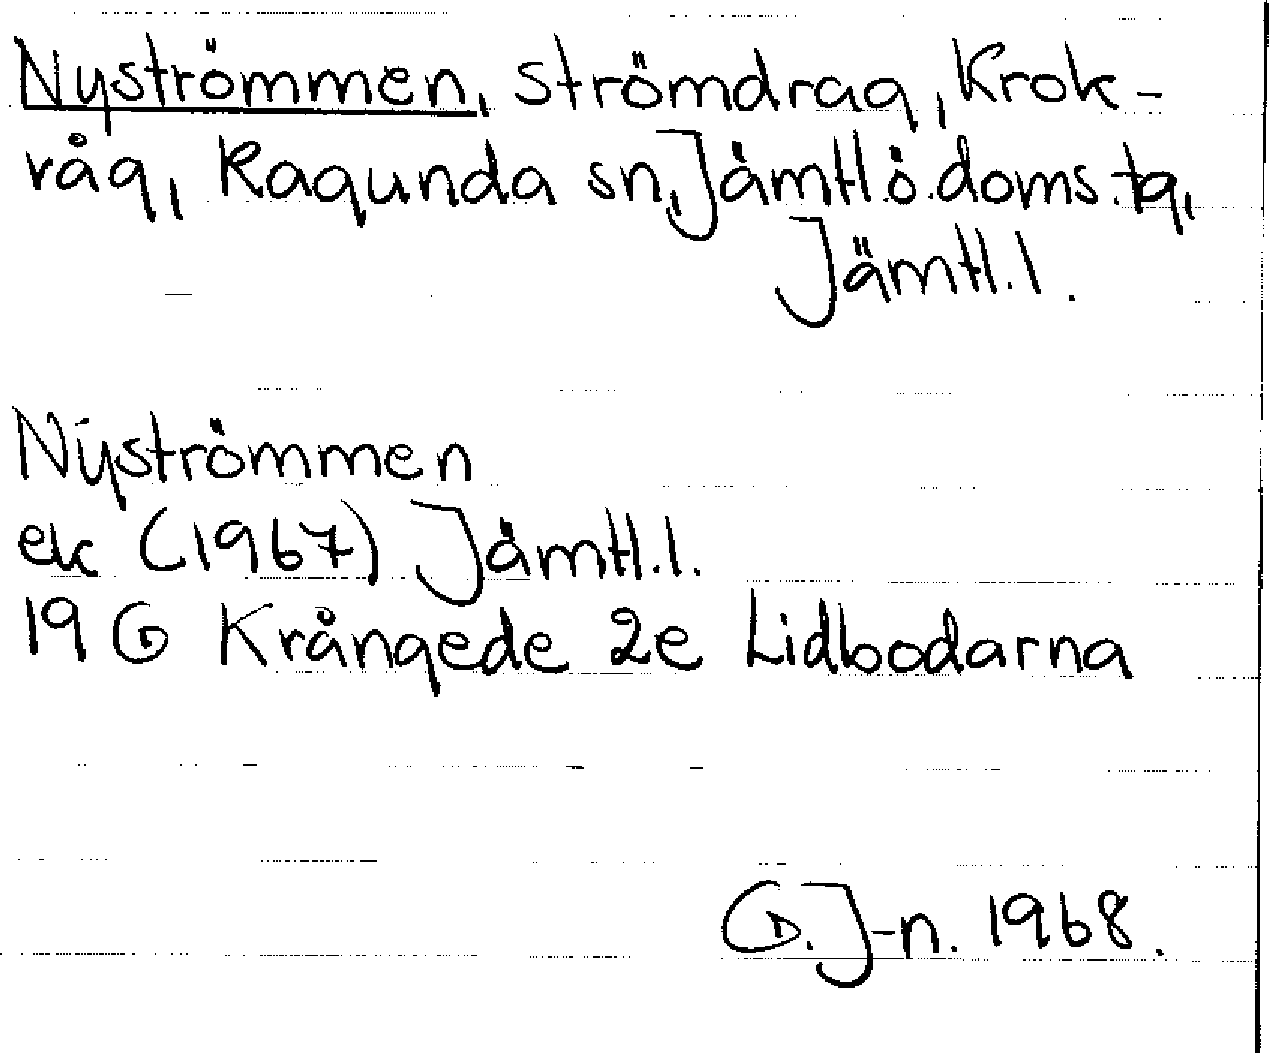 Nyströmmen, strömdrag, Krok-
våg, Ragunda sn, Jämtl.ö.doms.tg,
Jämtl.l.
Nyströmmen
ek (1967) Jämtl.l.
19 G Krångede 2e Lidbodarna
G. J-n. 1968.